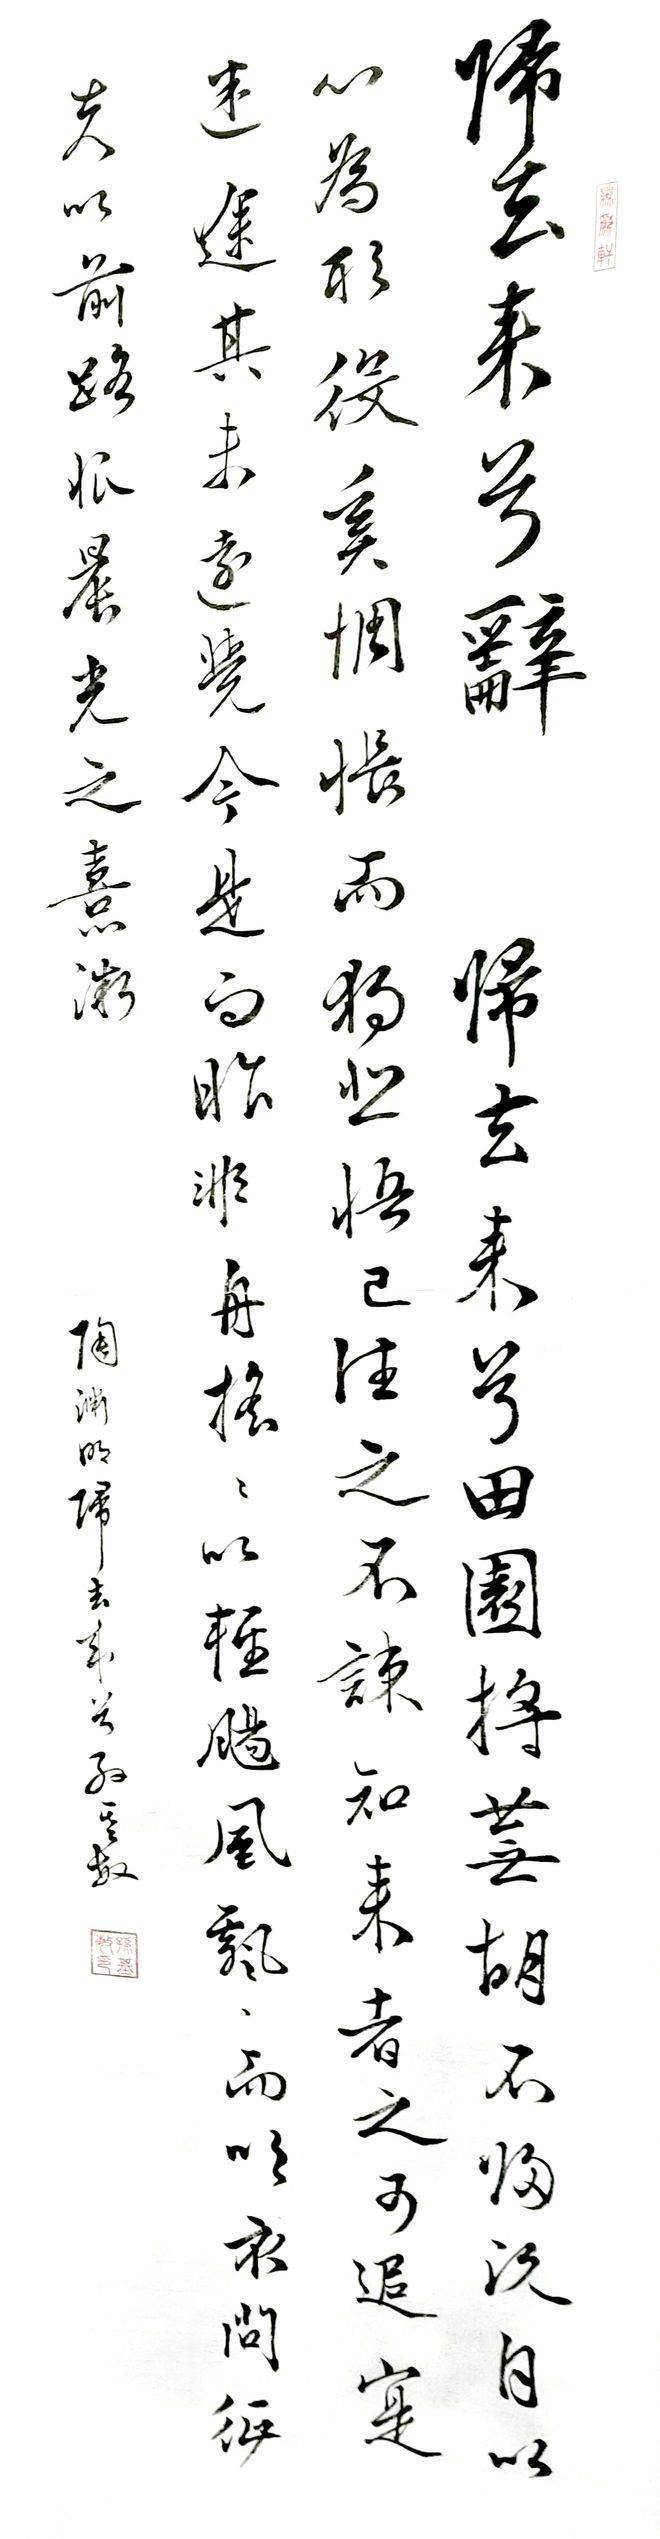 歸去来兮辭 歸去来兮田園将蕪胡不歸既自以
心為形役奚惆悵而獨悲悟已往之不諫知来者之可追寔
迷途其未遠覺今是而昨非舟搖〻以輕颺風飄〻而吹衣問征
夫以前路恨晨光之熹微
陶渊明歸去来兮 孙基敏
孫基敏印